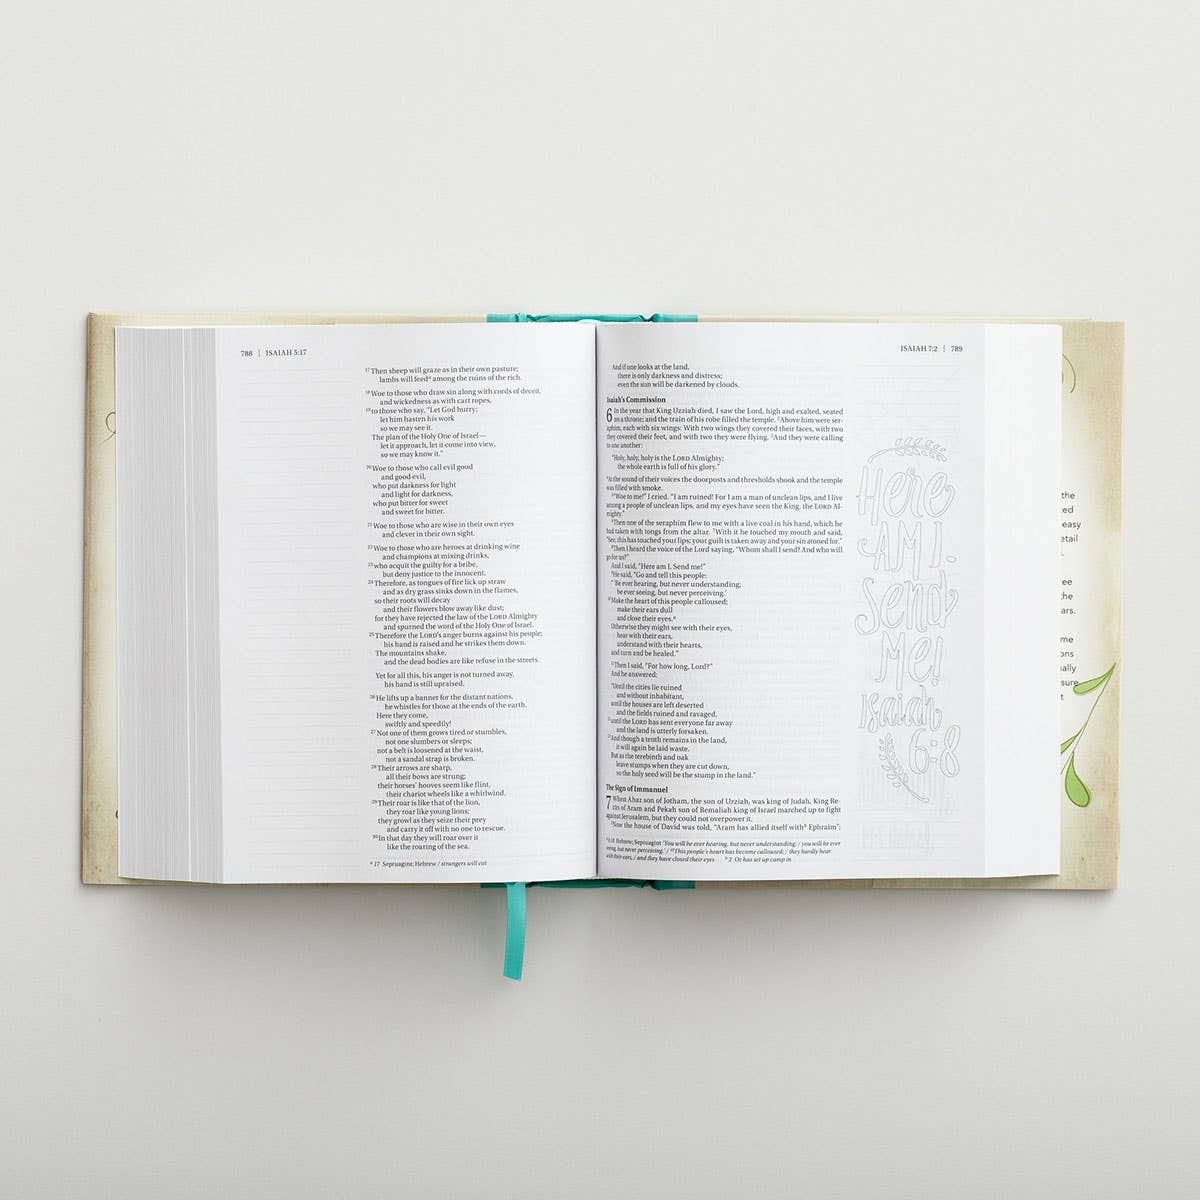 788 | ISAIAH 5:17
17 Then sheep will graze as in their own pasture;
lambs will feed a among the ruins of the rich.
18 Woe to those who draw sin along with cords of deceit,
and wickedness as with cart ropes,
19 to those who say, “Let God hurry;
let him hasten his work
so we may see it.
The plan of the Holy One of Israel—
let it approach, let it come into view,
so we may know it.”
20 Woe to those who call evil good
and good evil,
who put darkness for light
and light for darkness,
who put bitter for sweet
and sweet for bitter.
21 Woe to those who are wise in their own eyes
and clever in their own sight.
22 Woe to those who are heroes at drinking wine
and champions at mixing drinks,
23 who acquit the guilty for a bribe,
but deny justice to the innocent.
24 Therefore, as tongues of fire lick up straw
and as dry grass sinks down in the flames,
so their roots will decay
and their flowers blow away like dust;
for they have rejected the law of the LORD Almighty
and spurned the word of the Holy One of Israel.
25 Therefore the LORD’s anger burns against his people;
his hand is raised and he strikes them down.
The mountains shake,
and the dead bodies are like refuse in the streets.
Yet for all this, his anger is not turned away,
his hand is still upraised.
26 He lifts up a banner for the distant nations,
he whistles for those at the ends of the earth.
Here they come,
swiftly and speedily!
27 Not one of them grows tired or stumbles,
not one slumbers or sleeps;
not a belt is loosened at the waist,
not a sandal strap is broken.
28 Their arrows are sharp,
all their bows are strung;
their horses’ hooves seem like flint,
their chariot wheels like a whirlwind.
29 Their roar is like that of the lion,
they roar like young lions;
they growl as they seize their prey
and carry it off with no one to rescue.
30 In that day they will roar over it
like the roaring of the sea.
a 17 Septuagint; Hebrew / strangers will eat
ISAIAH 7:2 | 789
And if one looks at the land,
there is only darkness and distress;
even the sun will be darkened by clouds.
Isaiah’s Commission
6 In the year that King Uzziah died, I saw the Lord, high and exalted, seated
on a throne; and the train of his robe filled the temple. 2 Above him were ser-
aphim, each with six wings: With two wings they covered their faces, with two
they covered their feet, and with two they were flying. 3 And they were calling
to one another:
“Holy, holy, holy is the LORD Almighty;
the whole earth is full of his glory.”
4 At the sound of their voices the doorposts and thresholds shook and the temple
was filled with smoke.
5 “Woe to me!” I cried. “I am ruined! For I am a man of unclean lips, and I live
among a people of unclean lips, and my eyes have seen the King, the LORD Al-
mighty.”
6 Then one of the seraphim flew to me with a live coal in his hand, which he
had taken with tongs from the altar. 7 With it he touched my mouth and said,
“See, this has touched your lips; your guilt is taken away and your sin atoned for.”
8 Then I heard the voice of the Lord saying, “Whom shall I send? And who will
go for us?”
And I said, “Here am I. Send me!”
9 He said, “Go and tell this people:
“ ‘Be ever hearing, but never understanding;
be ever seeing, but never perceiving.’
10 Make the heart of this people calloused;
make their ears dull
and close their eyes. a
Otherwise they might see with their eyes,
hear with their ears,
understand with their hearts,
and turn and be healed.”
11 Then I said, “For how long, Lord?”
And he answered:
“Until the cities lie ruined
and without inhabitant,
until the houses are left deserted
and the fields ruined and ravaged,
12 until the LORD has sent everyone far away
and the land is utterly forsaken.
13 And though a tenth remains in the land,
it will again be laid waste.
But as the terebinth and oak
leave stumps when they are cut down,
so the holy seed will be the stump in the land.”
The Sign of Immanuel
7 When Ahaz son of Jotham, the son of Uzziah, was king of Judah, King Re-
zin of Aram and Pekah son of Remaliah king of Israel marched up to fight
against Jerusalem, but they could not overpower it.
2 Now the house of David was told, “Aram has allied itself with b Ephraim”;
a 9,10 Hebrew; Septuagint ‘You will be ever hearing, but never understanding; / you will be ever
seeing, but never perceiving.’ / 10 This people’s heart has become calloused; / they hardly hear
with their ears, / and they have closed their eyes b 2 Or has set up camp in
Here
AM I.
Send
ME!
Isaiah
6:8
the
ed
easy
etail
ee
the
ars.
me
ons
ally
sure
t